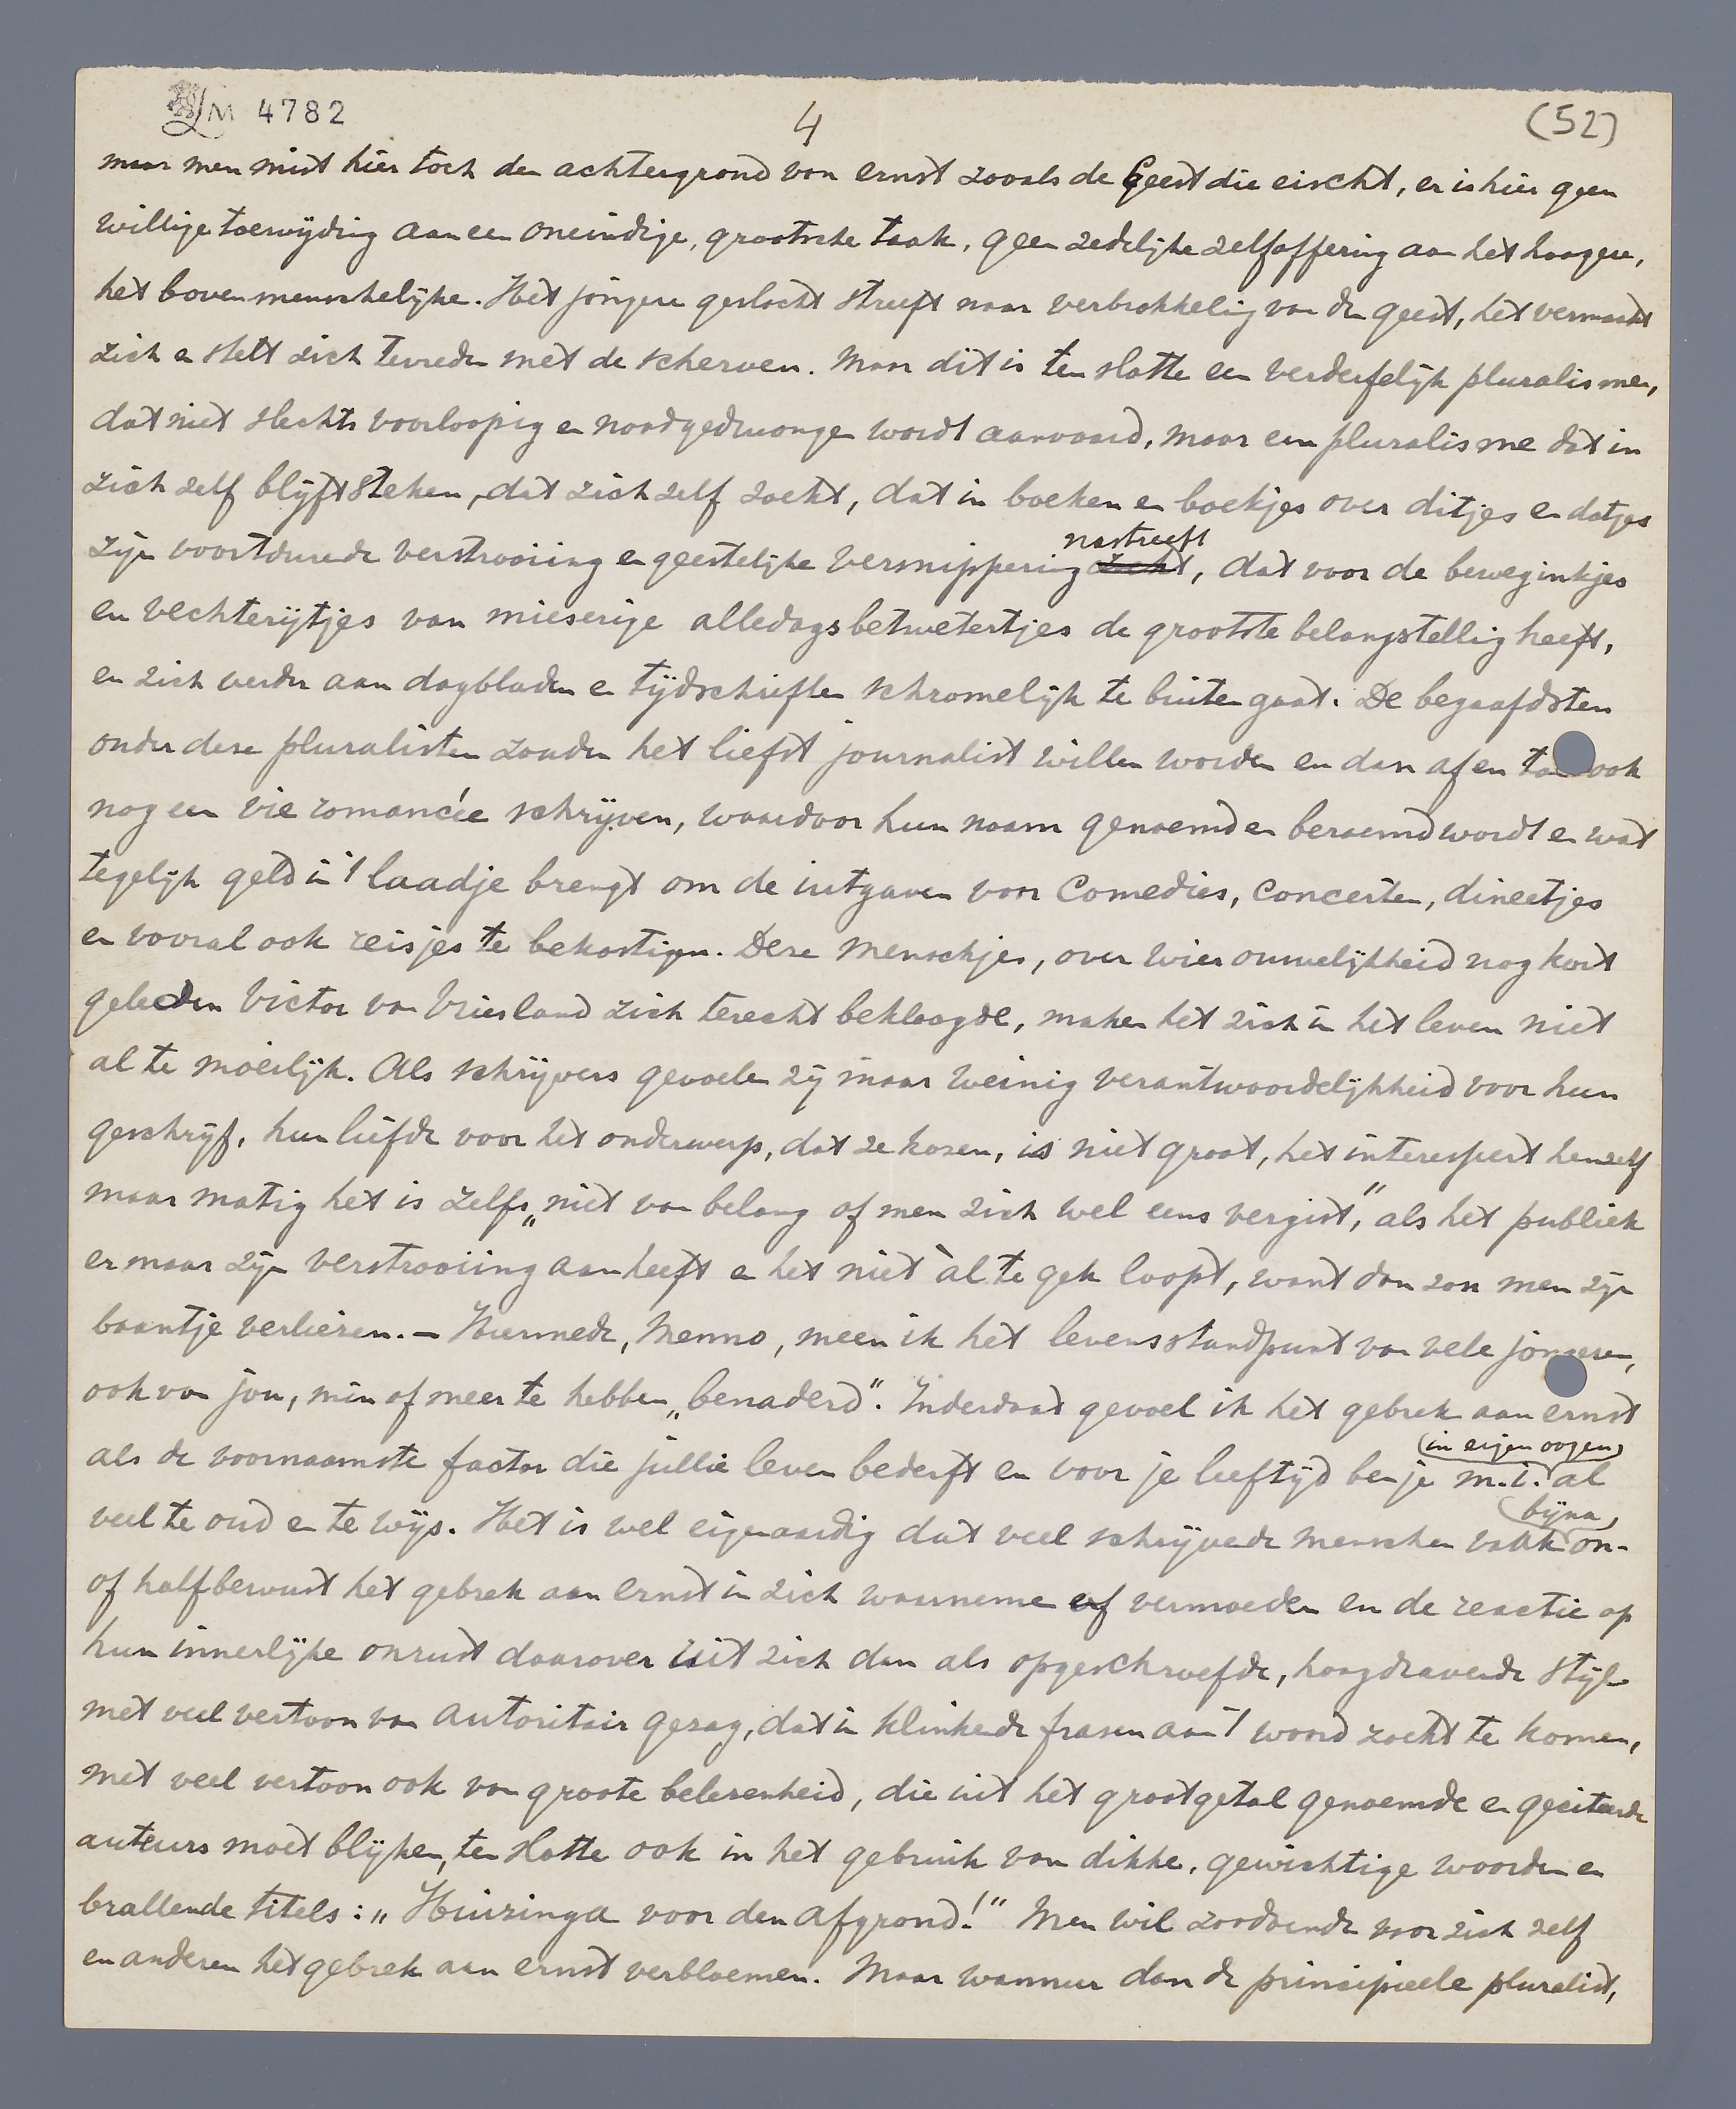 LM 4782
4
(52)
maar men mist hier toch den achtergrond van ernst zooals de Geest die eischt, er is hier geen
willige toewijding aan een oneindige, grootsche taak, geen zedelijke zelfoffering aan het hoogere,
het bovenmenschelijke. Het jongere geslacht streeft naar verbrokkeling van den geest, het vermaakt
zich en stelt zich tevreden met de scherven. Maar dit is ten slotte een verderfelijk pluralisme,
dat niet slechts voorloopig en noodgedwongen wordt aanvaard, maar een pluralisme dat in
zich zelf blijft steken, dat zich zelf zoekt, dat in boeken en boekjes over ditjes en datjes
nastreeft
zijn voortdurende verstrooiing en geestelijke versnippering zoekt, dat voor de beweginkjes
en vechterijtjes van mieserige alledagsbetwetertjes de grootste belangstelling heeft,
en zich verder aan dagbladen en tijdschriften schromelijk te buiten gaat. De begaafdsten
onder deze pluralisten zouden het liefst journalist willen worden en dan af en toe ook
nog een vie romancée schrijven, waardoor hun naam genoemd en beroemd wordt en wat
tegelijk geld in 't laadje brengt om de uitgaven voor comedies, concerten, dineetjes
en vooral ook reisjes te bekostigen. Deze menschjes, over wier ouwelijkheid nog kort
geleden Victor van Vriesland zich terecht beklaagde, maken het zich in het leven niet
al te moeilijk. Als schrijvers gevoelen zij maar weinig verantwoordelijkheid voor hun
geschrijf, hun liefde voor het onderwerp, dat ze kozen, is niet groot, het interesseert henzelf
maar matig het is zelfs „niet van belang of men zich wel eens vergist," als het publiek
er maar zijn verstrooiing aan heeft en het niet àl te gek loopt, want dan zou men zijn
baantje verliezen. — Hiermede, Menno, meen ik het levensstandpunt van vele jongeren,
ook van jou, min of meer te hebben „benaderd". Inderdaad gevoel ik het gebrek aan ernst
(in eigen oogen)
als de voornaamste factor die jullie leven bederft en voor je leeftijd ben je m.i. al
bijna
veel te oud en te wijs. Het is wel eigenaardig dat veel schrijvende menschen vaak on-
of halfbewust het gebrek aan ernst in zich waarnemen of vermoeden en de reactie op
hun innerlijke onrust daarover uit zich dan als opgeschroefde, hoogdravende stijl
met veel vertoon van autoritair gezag, dat in klinkende frasen aan 't woord zoekt te komen,
met veel vertoon ook van groote belezenheid, die uit het groot getal genoemde en geciteerde
auteurs moet blijken, ten slotte ook in het gebruik van dikke, gewichtige woorden en
brallende titels: „Huizinga voor den afgrond!" Men wil zoodoende voor zich zelf
en anderen het gebrek aan ernst verbloemen. Maar wanneer dan de principieele pluralist,